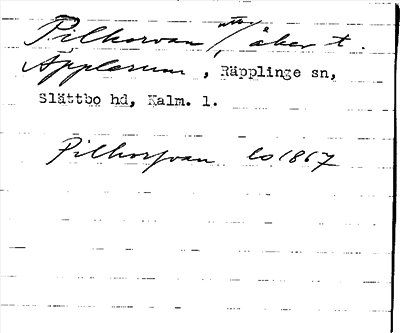 Pilkorvan, åker t.
Äpplerum, Räpplinge sn,
Slättbo hd, Kalm. l.
Pilkorfvan lo 1867